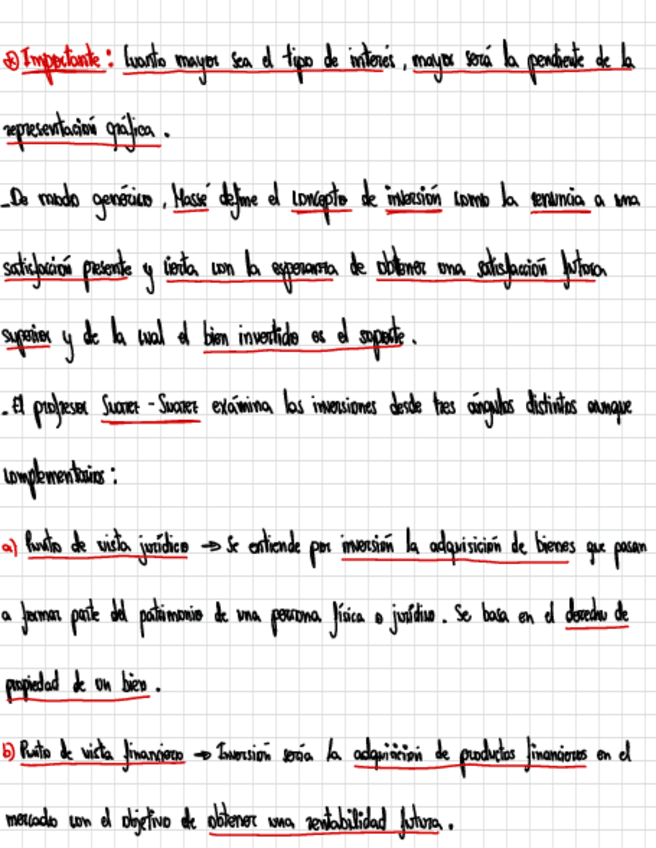 ⊛ Importante: Cuanto mayor sea el tipo de interés, mayor será la pendiente de la
representación gráfica.
_De modo genérico, Massé define el concepto de inversión como la renuncia a una
satisfacción presente y cierta con la esperanza de obtener una satisfacción futura
superior y de la cual el bien invertido es el soporte.
_El profesor Suarez - Suarez exámina las inversiones desde tres ángulos distintos aunque
complementarios:
a) Punto de vista jurídico → Se entiende por inversión la adquisición de bienes que pasan
a formar parte del patrimonio de una persona física o jurídica. Se basa en el derecho de
propiedad de un bien.
b) Punto de vista financiero → Inversión sería la adquisición de productos financieros en el
mercado con el objetivo de obtener una rentabilidad futura.